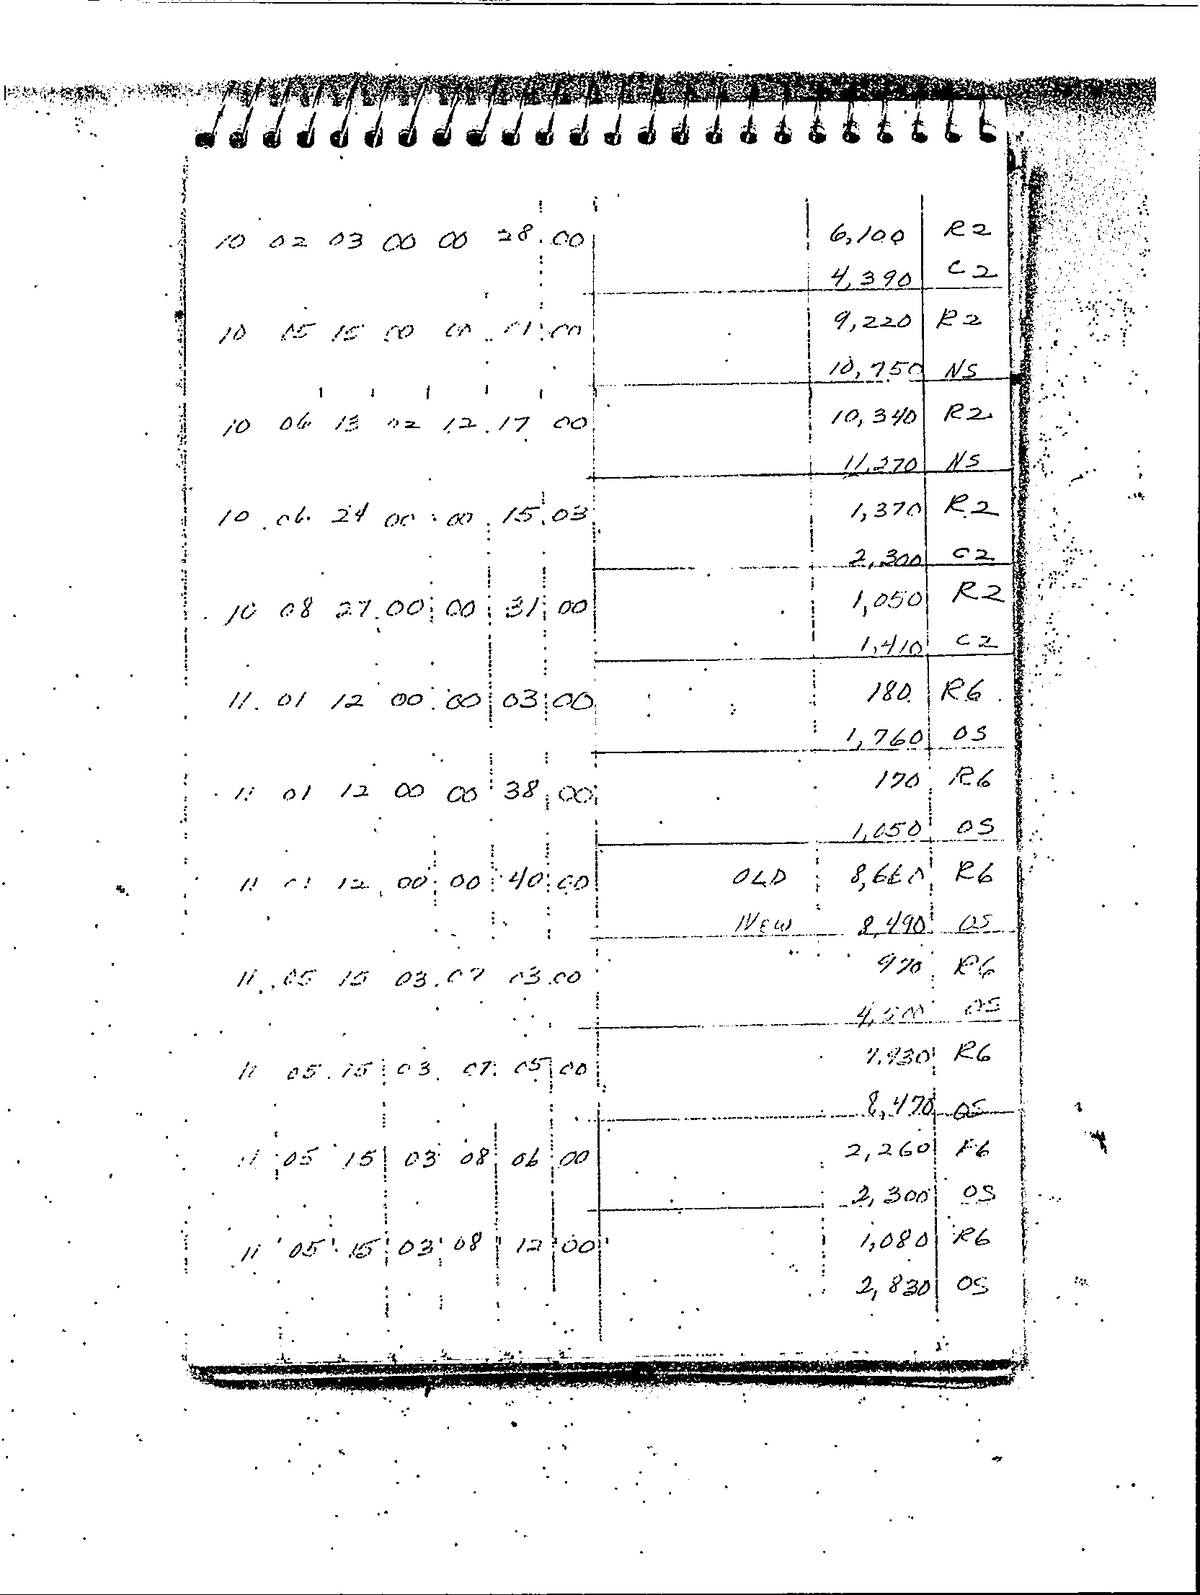 10 02 03 00 00 28 00 6,100 R2
4,390 C2
10 05 15 00 00 01 00 9,220 R2
10,750 NS
10 06 13 02 12 17 00 10,340 R2
11,270 NS
10 06 24 00 00 15 03 1,370 R2
2,300 C2
10 08 27 00 00 31 00 1,050 R2
1,410 C2
11 01 12 00 00 03 00 180 R6
1,760 OS
11 01 12 00 00 38 00 170 R6
1,050 OS
11 01 12 00 00 40 00 OLD 8,660 R6
NEW 8,490 OS
11 05 15 03 07 03 00 970 R6
OS
11 05 15 03 07 05 00 7,930 R6
8,470 OS
11 05 15 03 08 06 00 2,260 R6
2,300 OS
11 05 15 03 08 12 00 1,080 R6
2,830 OS